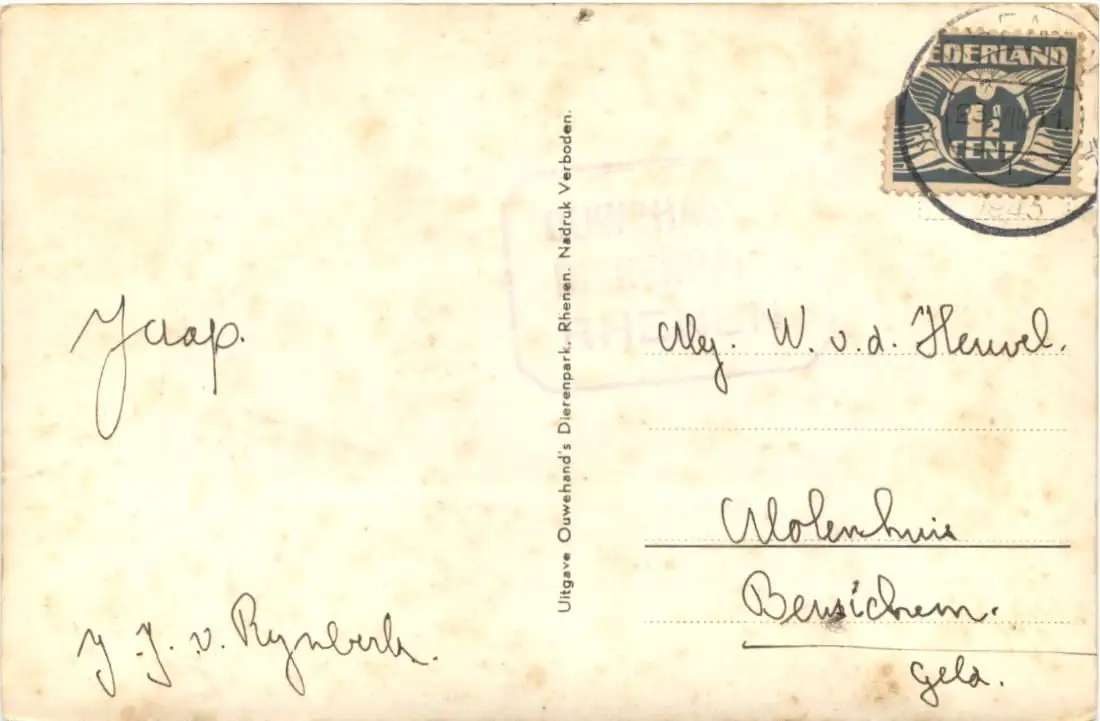 Jaap.
J. J. v. Rynberk.
Uitgave Ouwehand's Dierenpark. Rhenen. Nadruk Verboden.
NEDERLAND
1½
CENT
1943
RHENEN
Mej. W. v. d. Heuvel.
Molenhuis
Beusichem.
Geld.